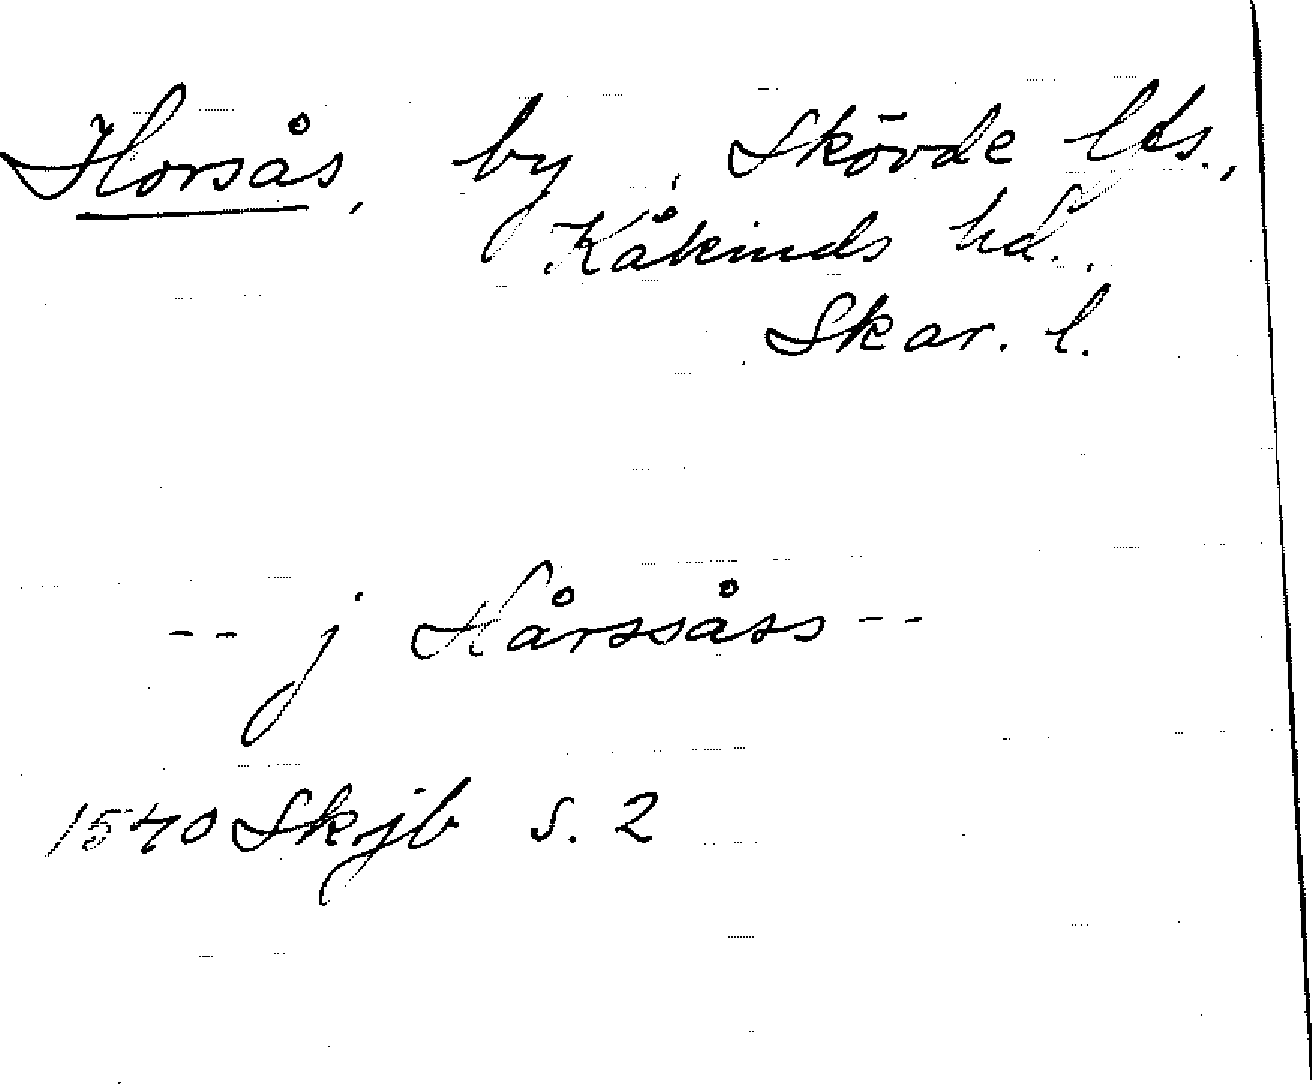 Horsås, by, Skövde lfs.,
Kåkinds hd.,
Skar. l.
-- j Hårssåss --
1540 Skjb s. 2